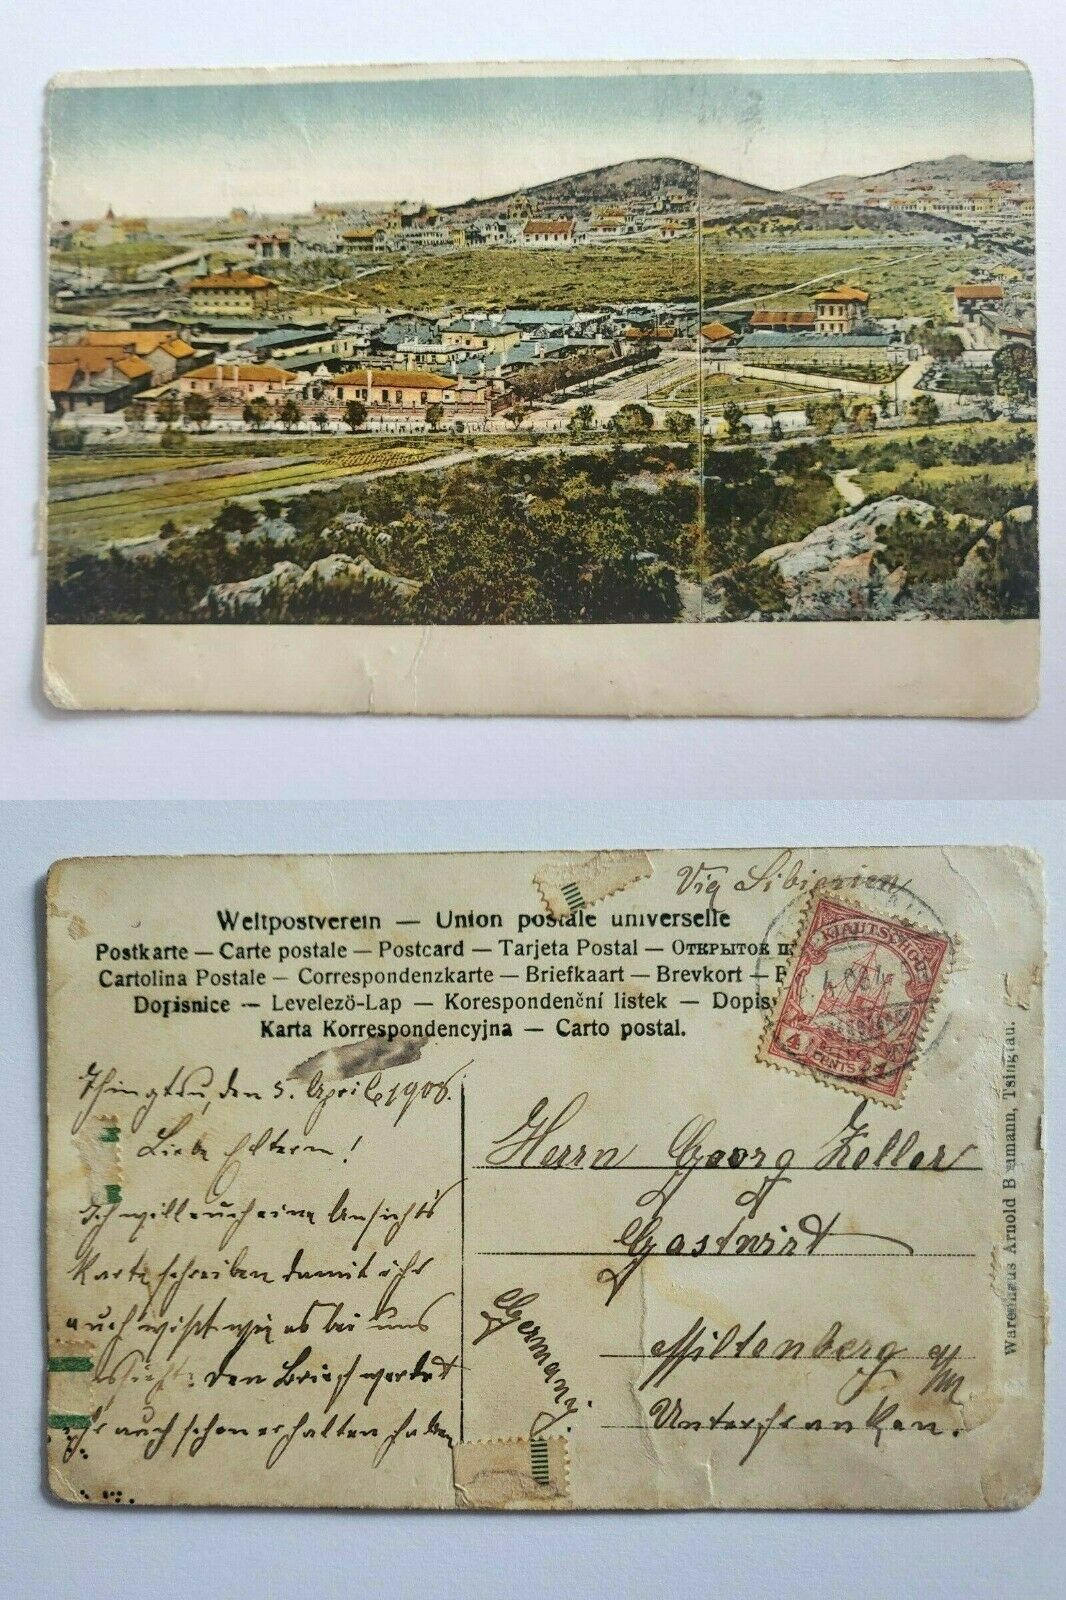 Via Sibirien
Weltpostverein — Union postale universelle
Postkarte — Carte postale — Postcard — Tarjeta Postal — Открыток п
Cartolina Postale — Correspondenzkarte — Briefkaart — Brevkort —
Dopisnice — Levelező-Lap — Korespondenční listek — Dopis
Karta Korrespondencyjna — Carto postal.
KIAUTSCHOU
4 CENTS 4
Thingtau, den 5. April 1908.
Liebe Eltern!
Ich will euch eine Ansichts
Karte schreiben damit ihr
auch wißt wie es bei uns
sieht. Den Brief werdet
ihr auch schon erhalten haben
Herrn Georg Zeller
Gastwirt
Miltenberg a/M
Unterfranken.
Germany.
Warenhaus Arnold B umann, Tsingtau.